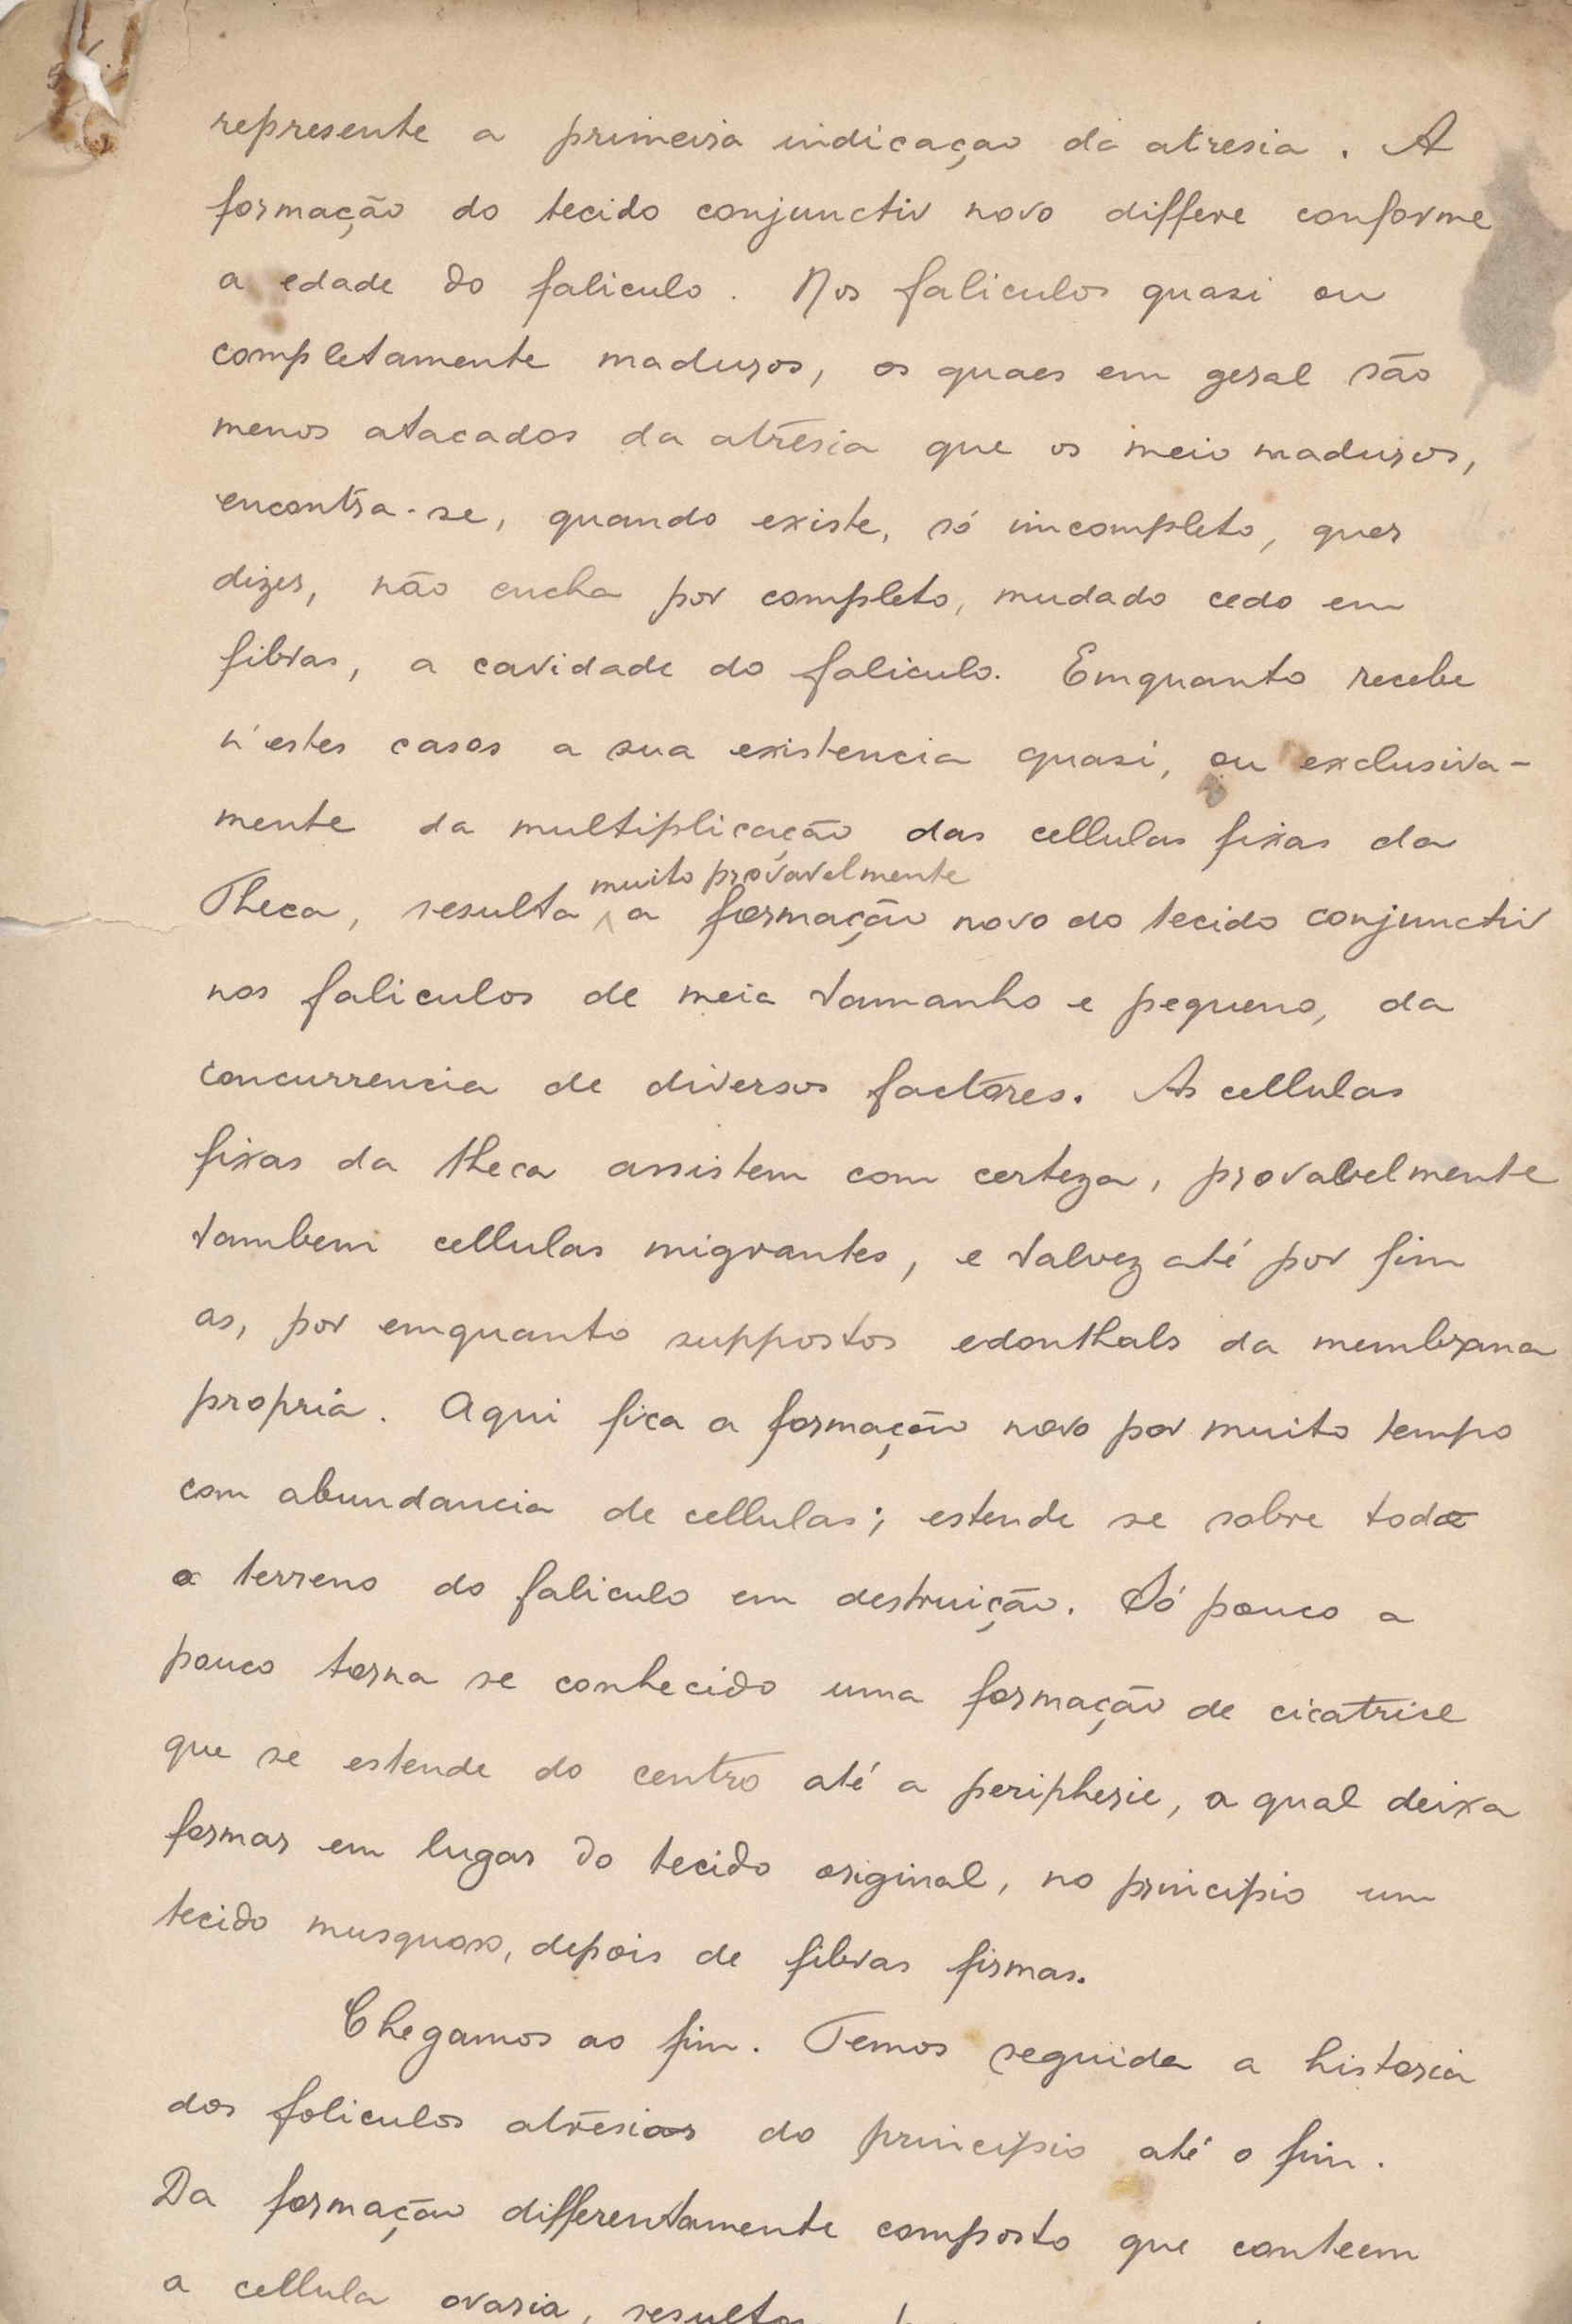 represente a primeira indicaçao da atresia. A
formação do tecido conjunctiv novo differe conforme
a edade do faliculo. Nos faliculos quasi ou
completamente maduros, os quaes em geral são
menos atacados da atresia que os meio maduros,
encontra-se, quando existe, só imcompleto, quer
dizer, não encha por completo, mudado cedo em
fibras, a cavidade do faliculo. Emquanto recebe
n'estes casos a sua existencia quasi, ou exclusiva-
mente da multiplicação das cellulas fixas da
muito provavelmente
Theca, resulta a formação novo do tecido conjunctiv
nos faliculos de meia tamanho e pequeno, da
concurrencia de diversos factores. As cellulas
fixas da theca assistem com certeza, provavelmente
tambem cellulas migrantes, e talvez até por fim
as, por emquanto suppostos edonthals da membrana
propria. Aqui fica a formação novo por muito tempo
com abundancia de cellulas; estende se sobre todo
o terreno do faliculo em destruição. Só pouco a
pouco torna se conhecido uma formação de cicatrice
que se estende do centro até a peripherie, a qual deixa
formar em lugar do tecido original, no principio um
tecido musquoso, depois de fibras firmas.
Chegamos ao fim. Temos seguida a historia
dos foliculos atresias do principio até o fim.
Da formação differentamente composto que conteem
a cellula ovaria,